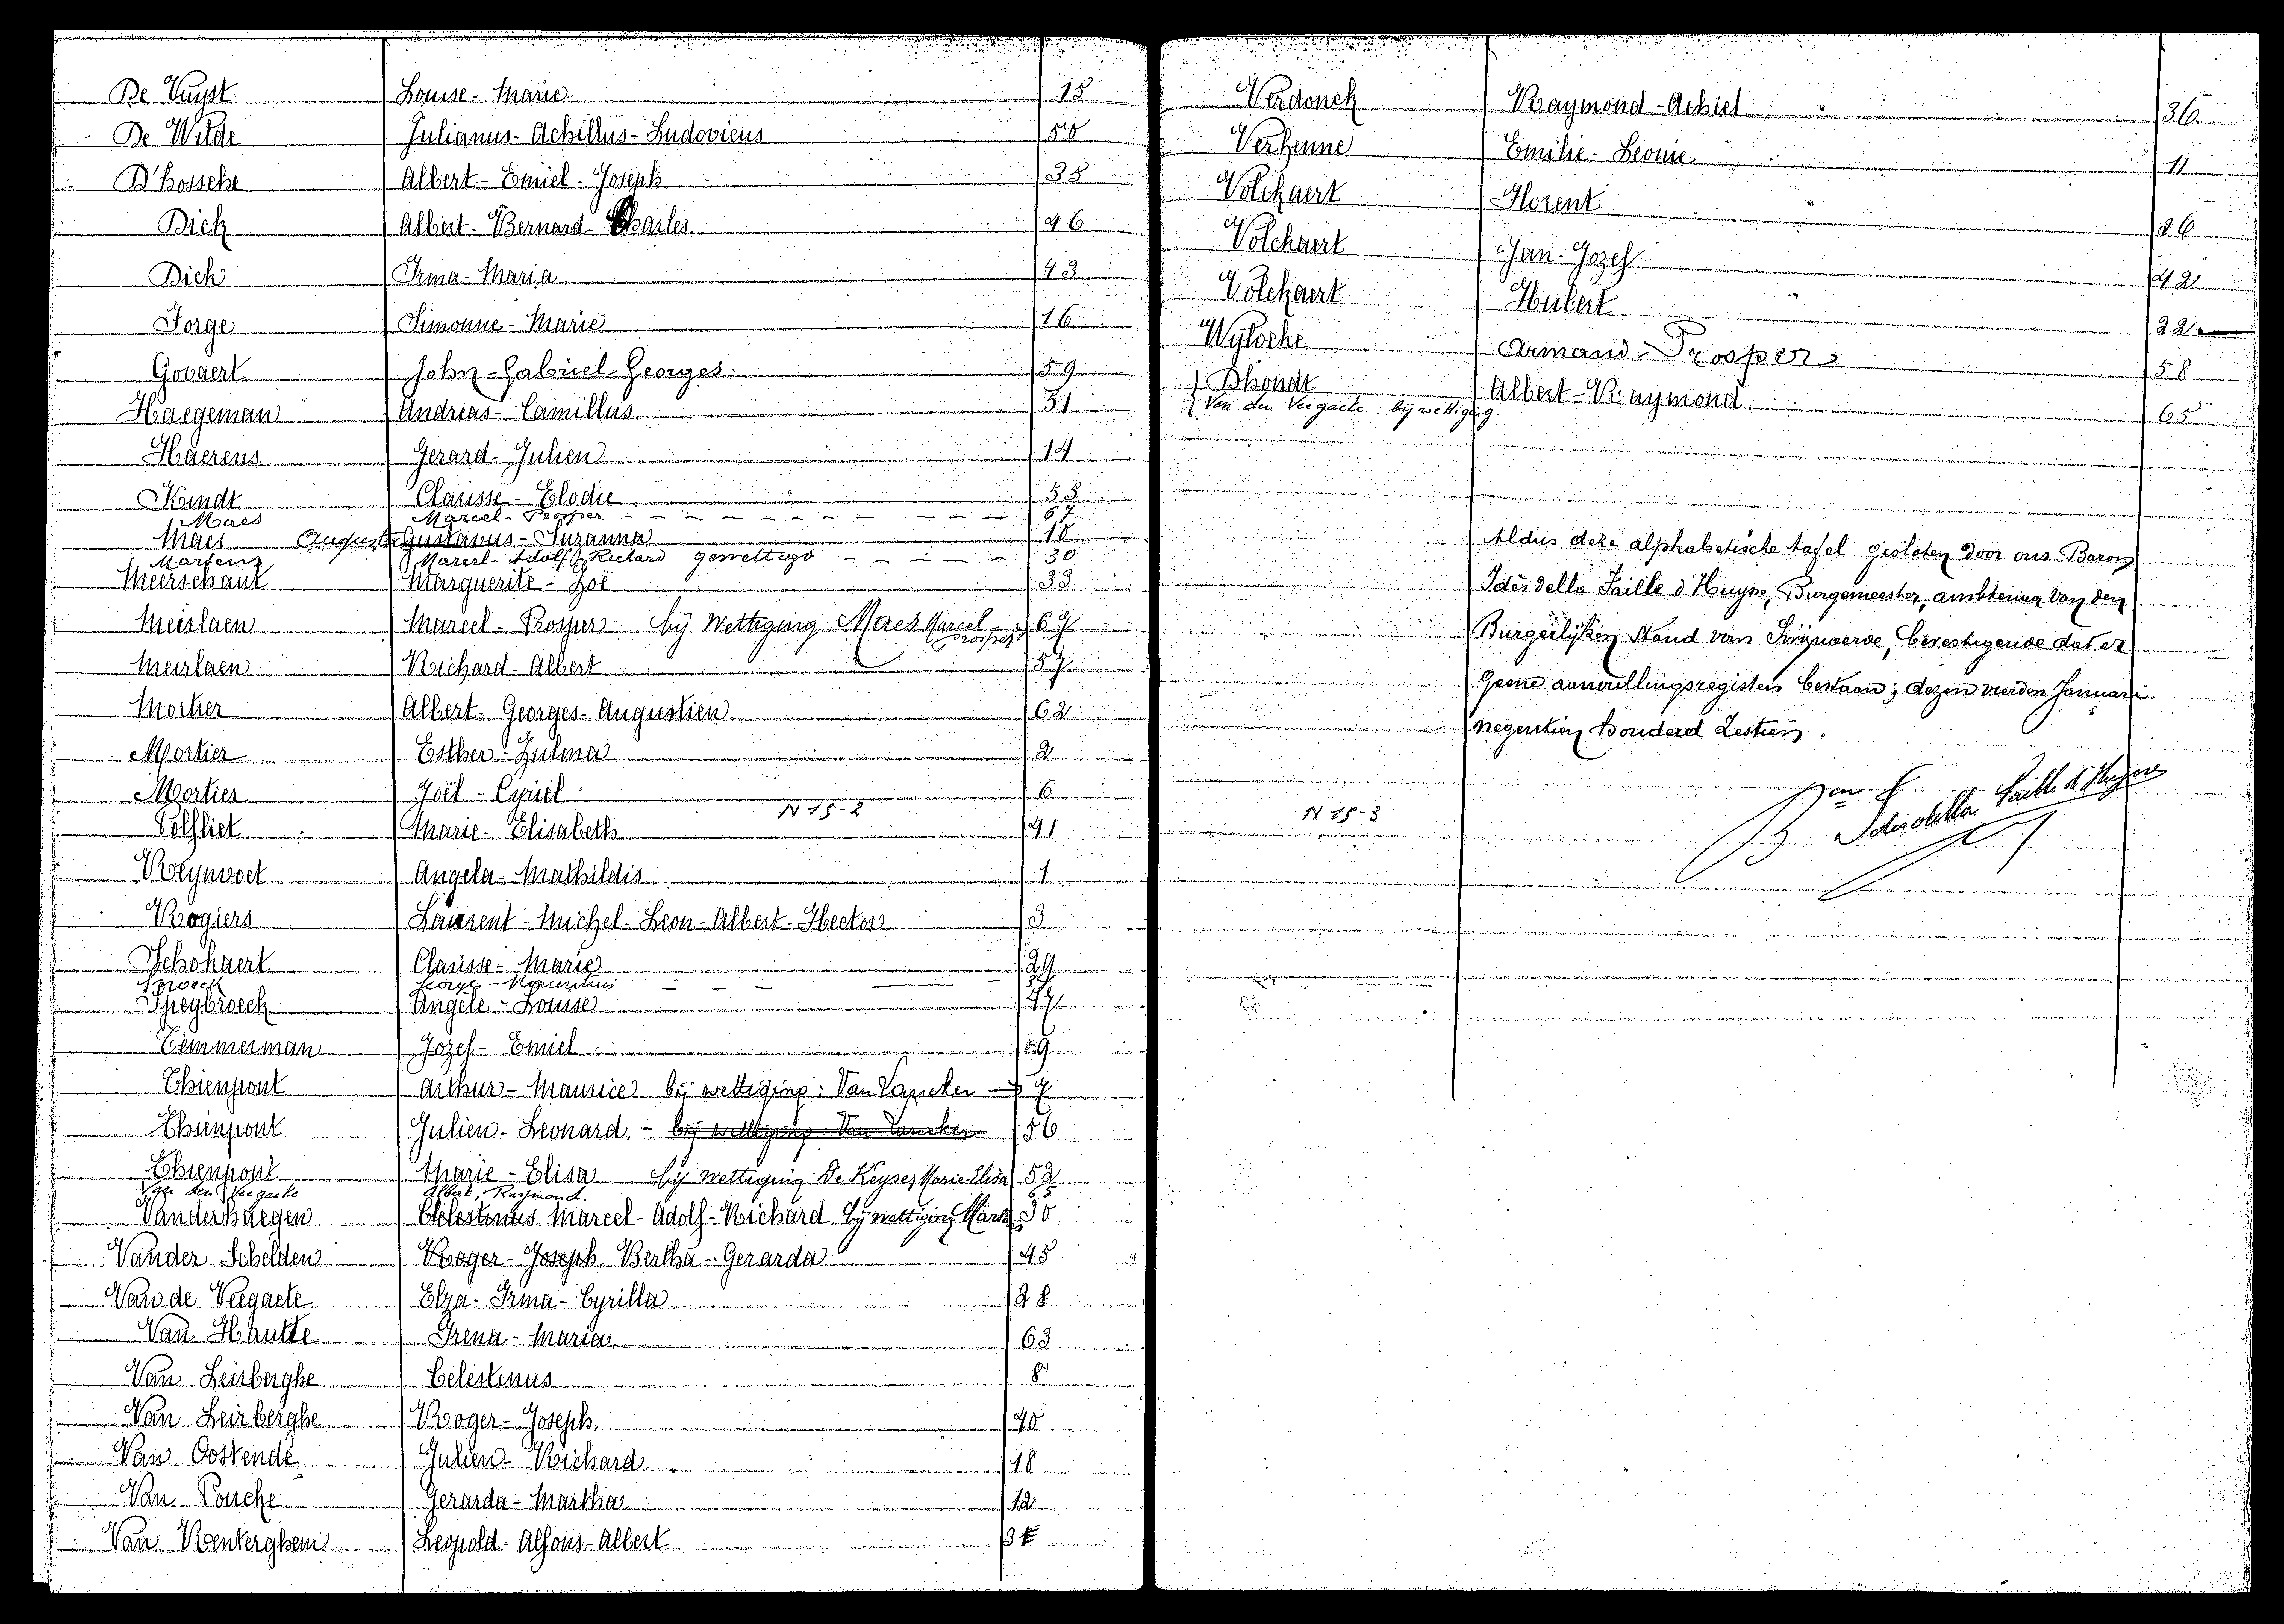 De Vuyst Louise-Marie 15
De Wilde Julianus-Achillus-Ludovicus 50
D'hossche Albert-Emiel-Joseph 35
Dick Albert-Bernard-Charles 46
Dick Irma-Maria 43
Forge Simonne-Marie 16
Govaert John-Gabriel-Georges 59
Haegeman Andreas-Camillus 31
Haerens Gerard-Julien 14
Kindt Clarisse-Elodie 55
Maes Marcel-Prosper 67
Maes Augusta Gustavus-Suzanna 10
Martens Marcel-Adolf-Richard gewettigd 30
Meerschaut Marguerite-Zoë 33
Meirlaen Marcel-Prosper bij Wettiging Maes Marcel Prosper 67
Meirlaen Richard-Albert 57
Mortier Albert-Georges-Augustien 62
Mortier Esther-Zulma 2
Mortier Joël-Cyriel 6
N 15-2
Polfliet Marie-Elisabeth 41
Reynvoet Angela-Mathildis 1
Rogiers Laurent-Michel-Leon-Albert-Hector 3
Schokaert Clarisse-Marie 29
Spoeck George-Mauritius
Speybroeck Angèle-Louise 47
Temmerman Jozef-Emiel 29
Thienpont Arthur-Maurice bij wettiging: Van Lancker 7
Thienpont Julien-Leonard. - bij wettiging Van Lancker 56
Thienpont Marie-Elisa bij wettiging De Keyser Marie Elisa 52
Van den Veegaete Albert, Raymond. 65
Vanderhaegen Celestinus Marcel-Adolf-Richard bij wettiging Martens 30
Vander Schelden Roger-Joseph Bertha-Gerarda 45
Van de Veegaete Elza-Irma-Cyrilla 28
Van Hhutte Irena-Maria 63
Van Leirberghe Celestinus 8
Van Leirberghe Roger-Joseph 40
Van Oostende Julien-Richard 18
Van Poucke Gerarda-Martha 12
Van Renterghem Leopold-Alfons-Albert
Verdonck Raymond-Achiel 36
Verhenne Emilie-Leonie 11
Volckaert Florent 26
Volckaert Jan-Jozef 42
Volckaert Hubert 22
Wylocke Armand-Prosper 58
D'hondt Albert-Raymond 65
Van den Veegaete: bij wettiging
Aldus deze alphabetische tafel gesloten door ons Baron
Idès della Faille d'Huysse, Burgemeester, ambtenaar van den
Burgerlijken Stand van Singuwerde, bevestigende dat er
geene aanvullingsregisters bestaan; dezen vierden Januari
negentien honderd zestien.
Idès della Faille d'Huysse
N 15-3